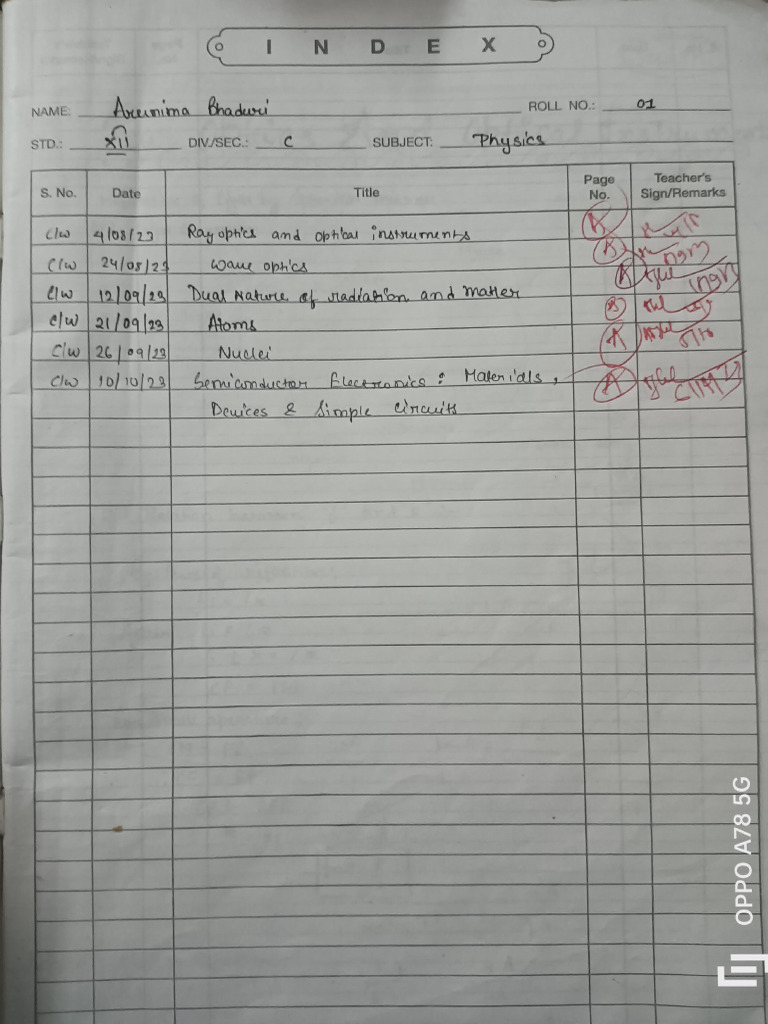 INDEX
NAME: Arunima Bhaduri ROLL NO.: 01
STD.: XII DIV/SEC.: C SUBJECT: Physics
S. No. Date Title Page No. Teacher's Sign/Remarks
C/W 4/08/23 Ray optics and optical instruments A
C/W 24/08/23 Wave optics B
C/W 12/09/23 Dual Nature of radiation and matter A
C/W 21/09/23 Atoms B
C/W 26/09/23 Nuclei A
C/W 10/10/23 Semiconductor Electronics: Materials, A
Devices & Simple Circuits
OPPO A78 5G